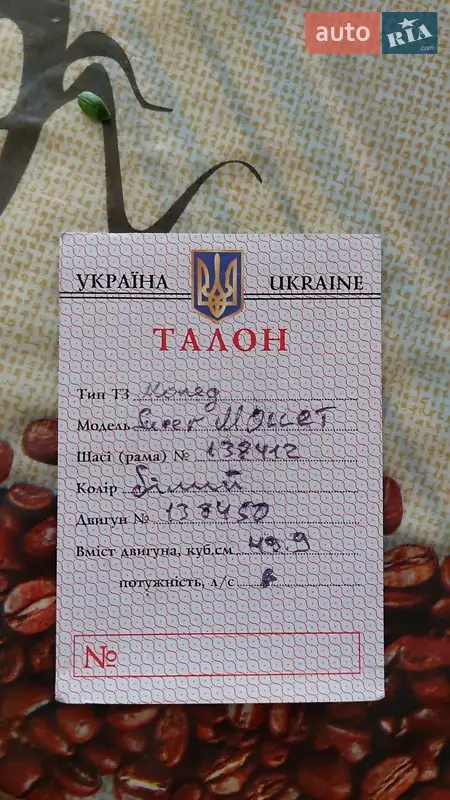 auto RIA.com
УКРАЇНА UKRAINE
ТАЛОН
Тип ТЗ Мопед
Модель
Шасі (рама) № 138412
Колір Білий
Двигун № 138450
Вміст двигуна, куб,см 49.9
потужність, л/с
№